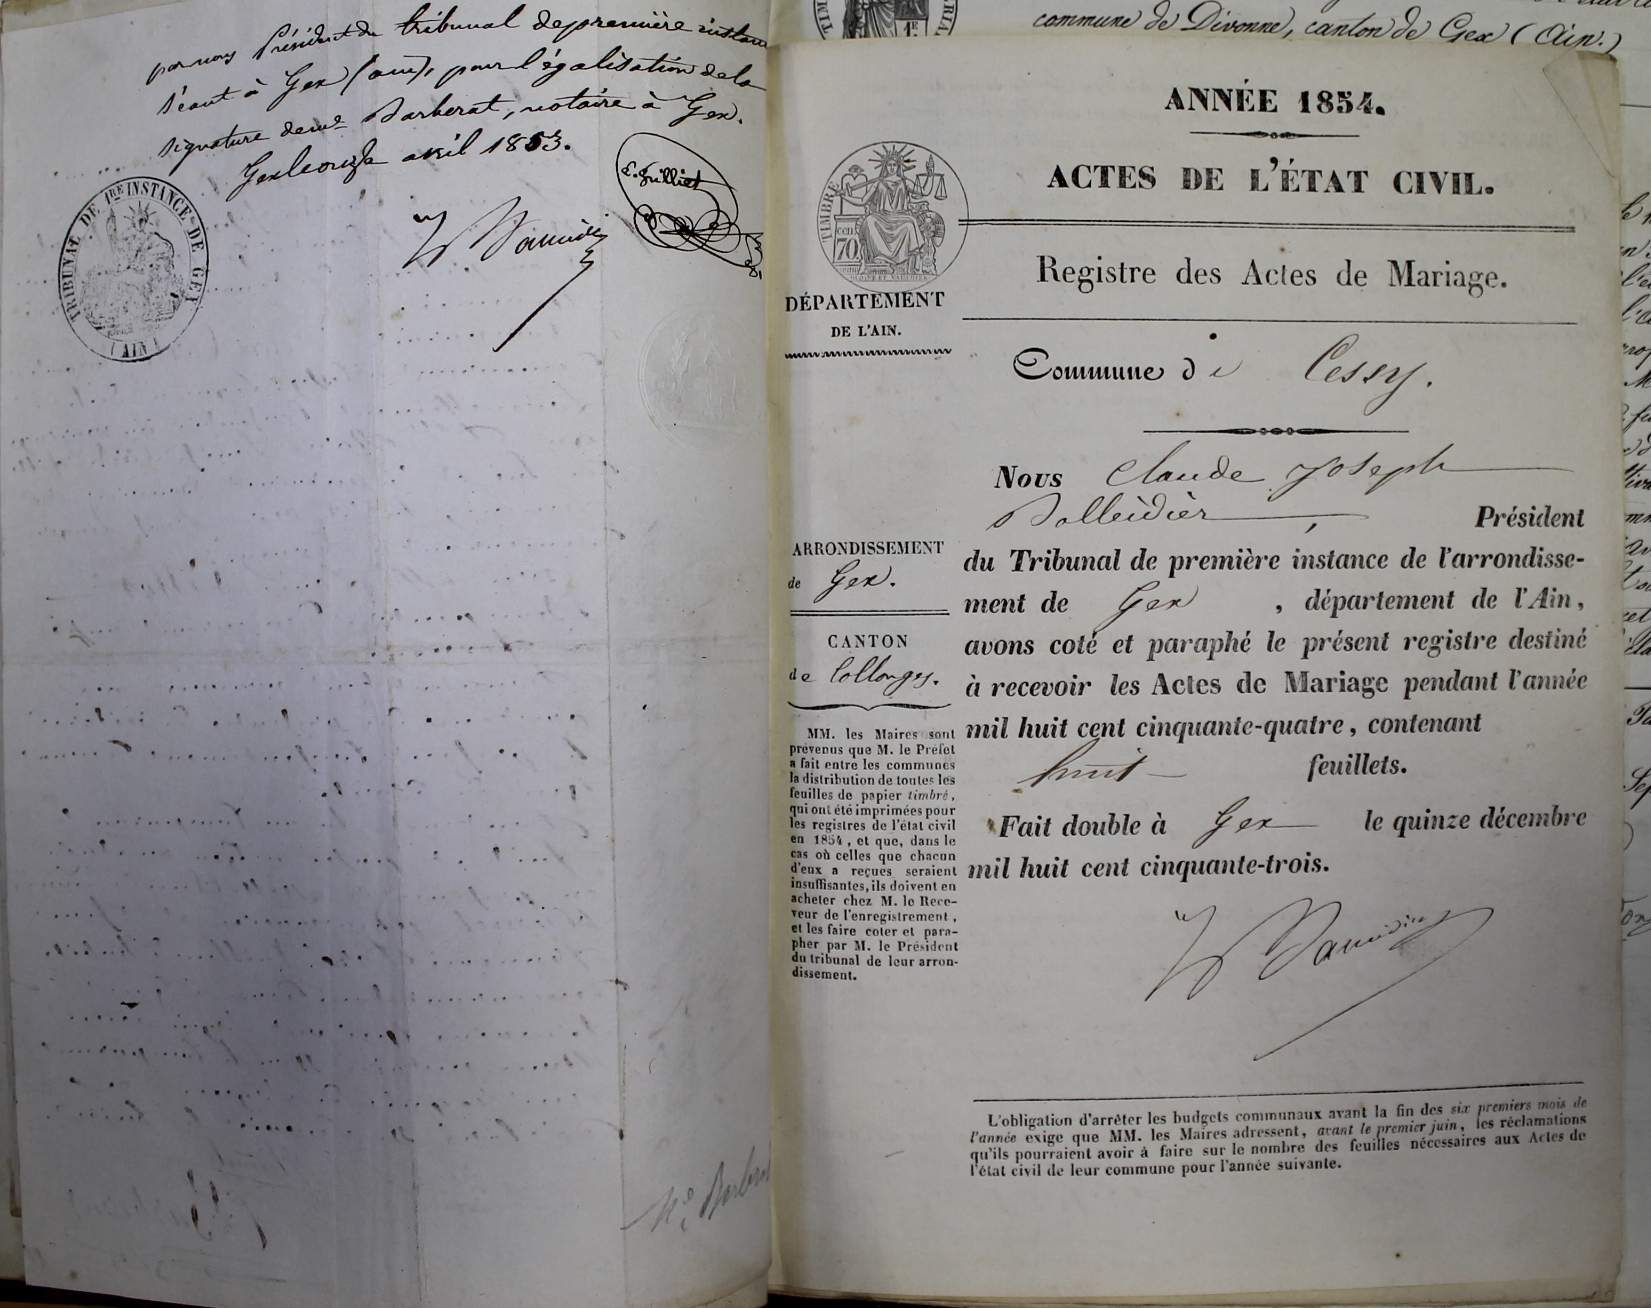 par nous Président du tribunal de première instance
séant à Gex (ain), pour légalisation de la
signature de me Barberat, notaire à Gex.
Gex le onze avril 1853.
TRIBUNAL DE 1RE INSTANCE DE GEX
(AIN)
commune de Divonne, canton de Gex (Ain.)
ANNÉE 1854.
ACTES DE L'ÉTAT CIVIL.
TIMBRE
cen
70
Registre des Actes de Mariage.
DÉPARTEMENT
DE L'AIN.
Commune de Cessy.
Nous Claude Joseph
, Président
du Tribunal de première instance de l'arrondisse-
ment de Gex , département de l'Ain,
avons coté et paraphé le présent registre destiné
à recevoir les Actes de Mariage pendant l'année
mil huit cent cinquante-quatre, contenant
huit feuillets.
Fait double à Gex le quinze décembre
mil huit cent cinquante-trois.
ARRONDISSEMENT
de Gex.
CANTON
de Collonges.
MM. les Maires sont
prévenus que M. le Préfet
a fait entre les communes
la distribution de toutes les
feuilles de papier timbré,
qui ont été imprimées pour
les registres de l'état civil
en 1854, et que, dans le
cas où celles que chacun
d'eux a reçues seraient
insuffisantes, ils doivent en
acheter chez M. le Rece-
veur de l'enregistrement,
et les faire coter et para-
pher par M. le Président
du tribunal de leur arron-
dissement.
L'obligation d'arrêter les budgets communaux avant la fin des six premiers mois de
l'année exige que MM. les Maires adressent, avant le premier juin, les réclamations
qu'ils pourraient avoir à faire sur le nombre des feuilles nécessaires aux Actes de
l'état civil de leur commune pour l'année suivante.